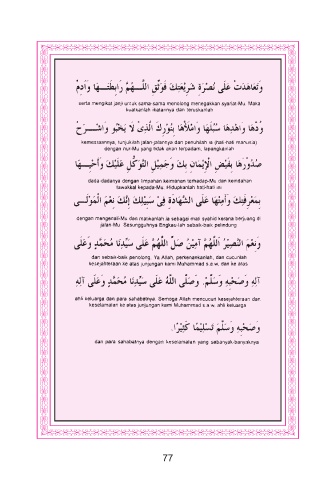 وَتَعَاهَدَتْ عَلَى نُصْرَةِ شَرِيْعَتِكَ فَوَثِّقِ اللَّـــهُمَّ رَابِطَتَـــهَا وَأَدِمْ
serta mengikat janji untuk sama-sama menolong menegakkan syariat-Mu. Maka
kuatkanlah ikatannya dan teruskanlah
وُدَّهَا وَاهْدِهَا سُبُلَهَا وَامْلَأْهَا بِنُوْرِكَ الَّذِىْ لَا يَخْبُو وَاشْـــرَحْ
kemesraannya, tunjukilah jalan-jalannya dan penuhilah ia (hati-hati manusia)
dengan nur-Mu yang tidak akan terpadam, lapangkanlah
صُدُوْرَهَا بِفَيْضِ الْإِيْمَانِ بِكَ وَجَمِيْلِ التَّوَكُّلِ عَلَيْكَ وَأَحْيِـــهَا
dada-dadanya dengan limpahan keimanan terhadap-Mu dan keindahan
tawakkal kepada-Mu. Hidupkanlah hati-hati ini
بِمَعْرِفَتِكَ وَأَمِتْهَا عَلَى الشَّهَادَةِ فِىْ سَبِيْلِكَ إِنَّكَ نِعْمَ الْمَوْلَـــى
dengan mengenali-Mu dan matikanlah ia sebagai mati syahid kerana berjuang di
jalan-Mu. Sesungguhnya Engkau lah sebaik-baik pelindung
وَنِعْمَ النَّصِيْرُ اَللَّهُمَّ آمِيْنَ صَلِّ اللَّهُمَّ عَلَى سَيِّدِنَا مُحَمَّدٍ وَعَلَى
dan sebaik-baik penolong. Ya Allah, perkenankanlah, dan cucurilah
kesejahteraan ke atas junjungan kami Muhammad s.a.w. dan ke atas
آلِهِ وَصَحْبِهِ وَسَلَّمْ. وَصَلَّى اللَّهُ عَلَى سَيِّدِنَا مُحَمَّدٍ وَعَلَى آلِهِ
ahli keluarga dan para sahabatnya. Semoga Allah mencucuri kesejahteraan dan
keselamatan ke atas junjungan kami Muhammad s.a.w. ahli keluarga
وَصَحْبِهِ وَسَلَّمَ تَسْلِيْمًا كَثِيْرًا.
dan para sahabatnya dengan keselamatan yang sebanyak-banyaknya
77